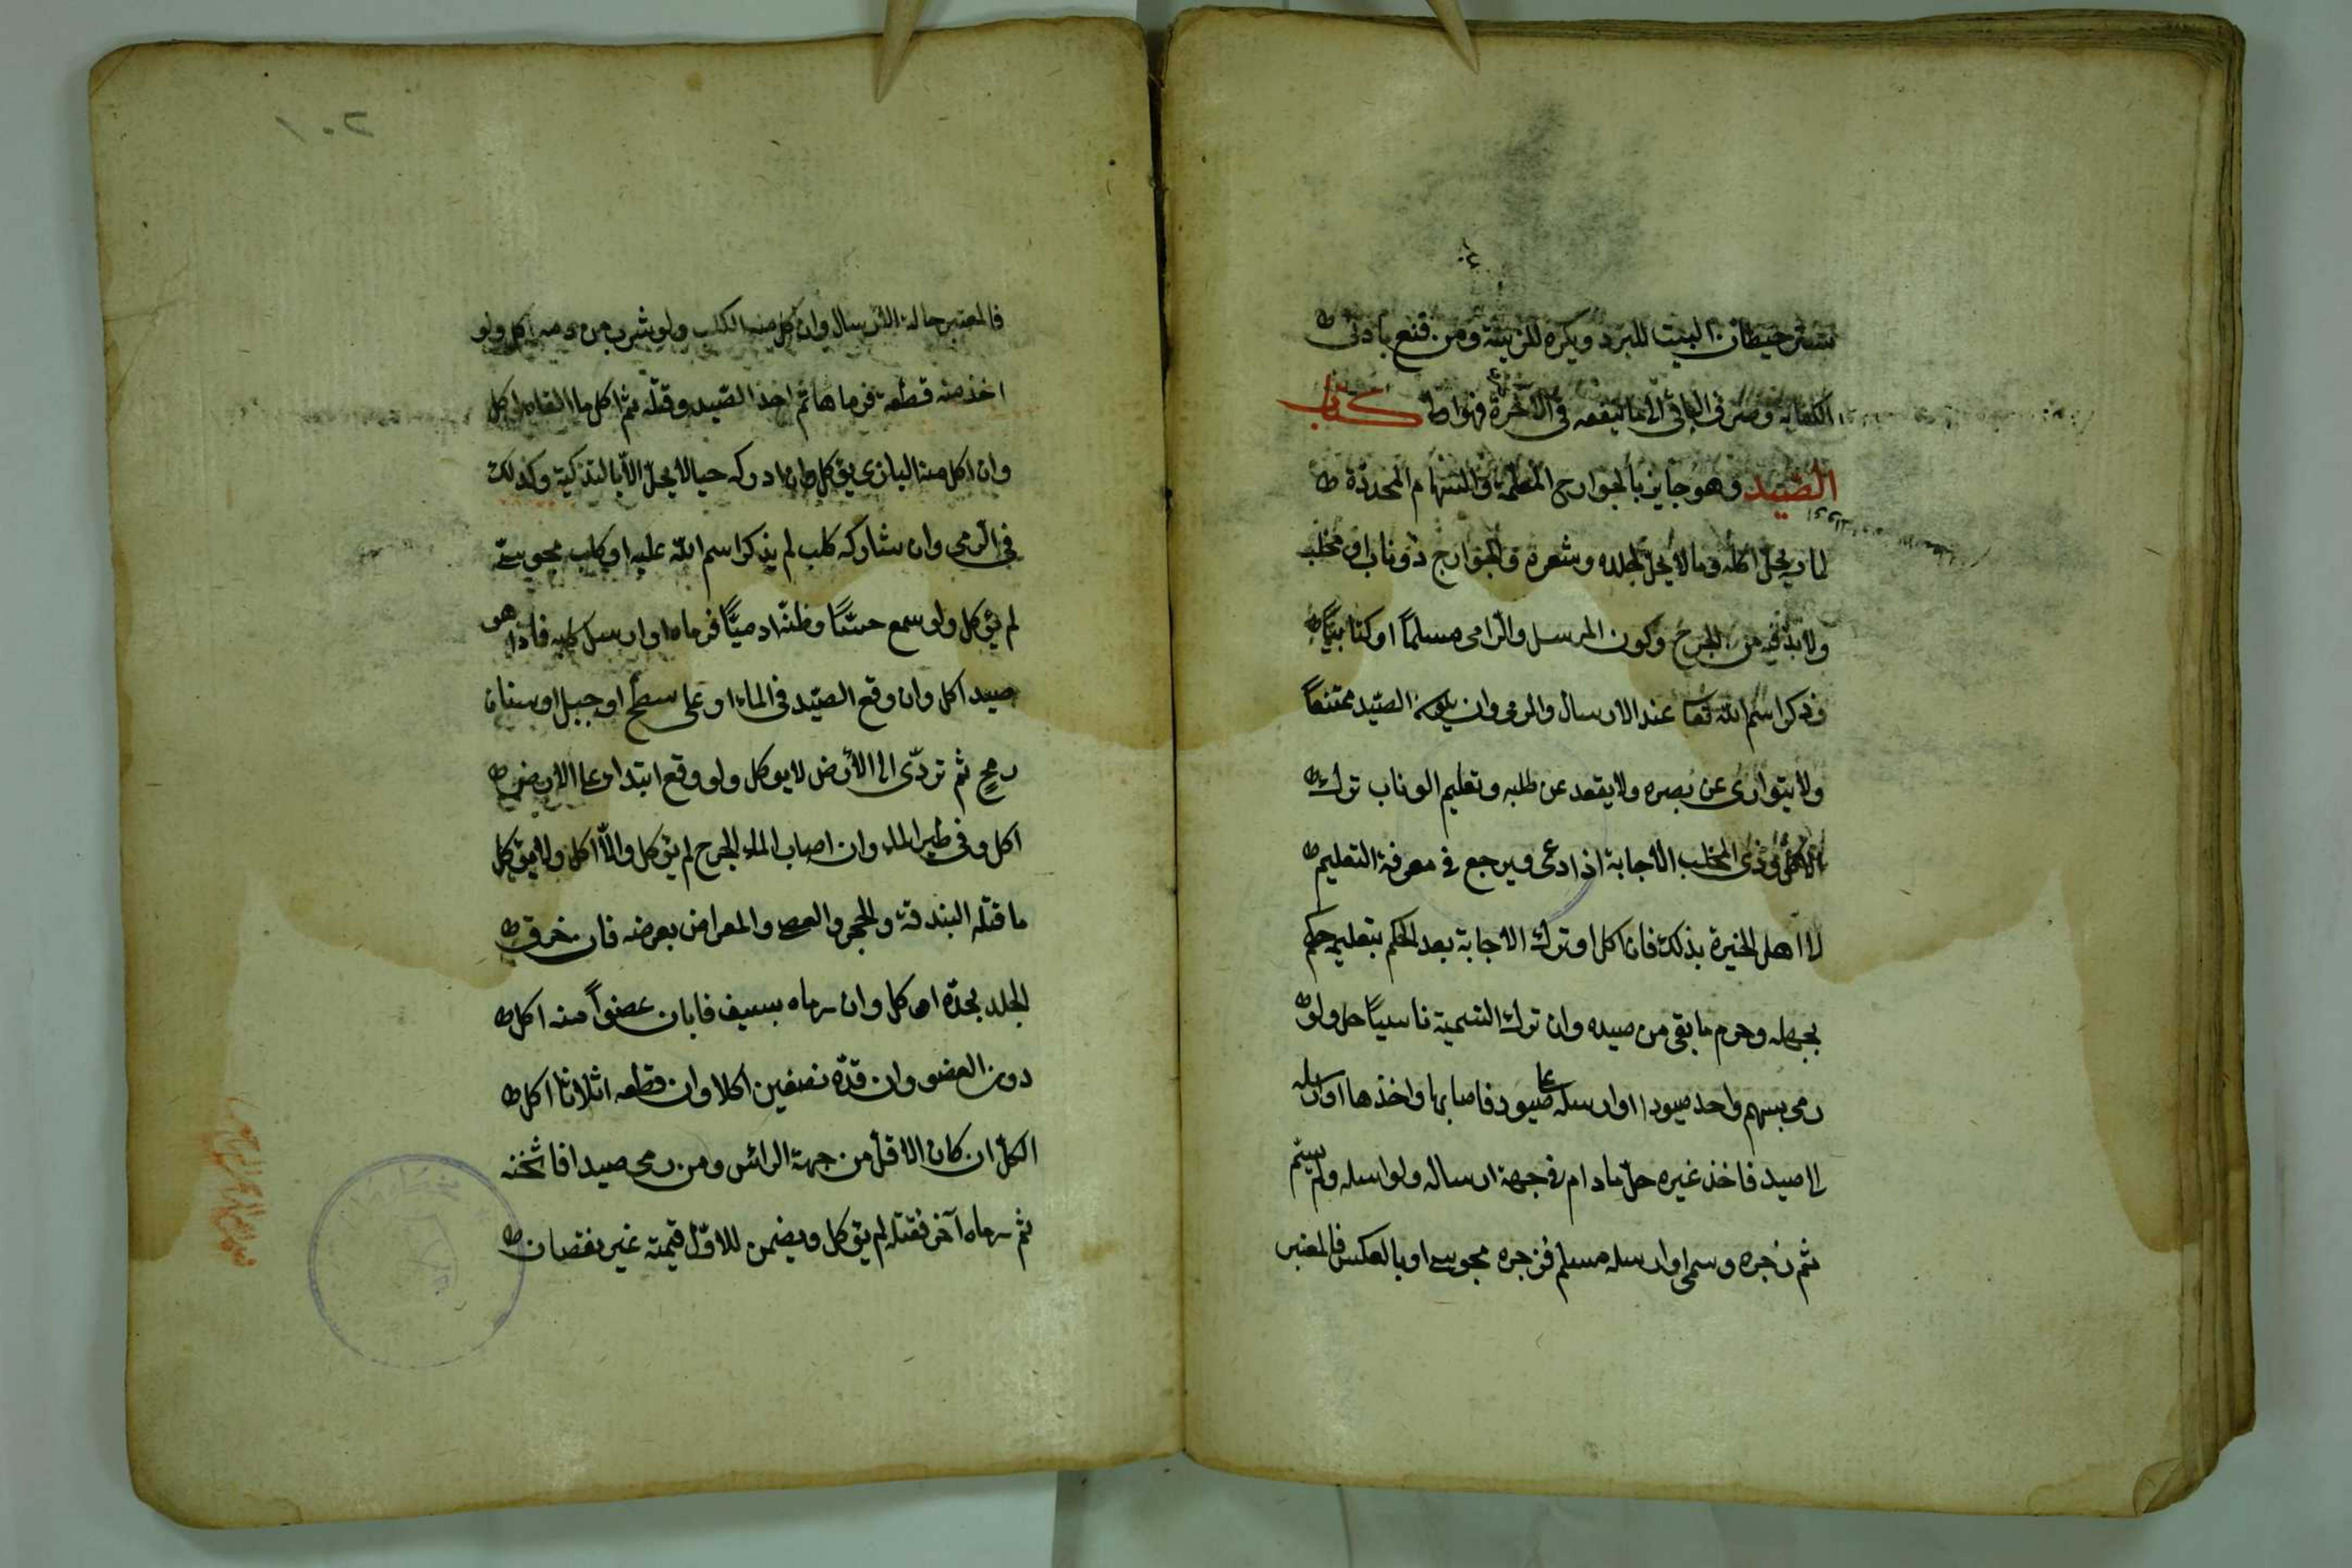 ستر حيطان البيت للبرد ويكره للزينة ومن قنع بأدنى
الكفاية وصرف الباقي الى ما ينفعه في الآخرة فهو اولى كتاب
الصيد وهو جايز بالجوارح المعلمة والسهام المحددة
لما يحل اكله وما لا يحل لجلده وشعره والجوارح ذو ناب او مخلب
ولا بد فيه من الجرح وكون المرسل والرامي مسلماً او كتابياً
وذكر اسم الله تعا عند الارسال والرمي وان يكون الصيد ممتنعاً
ولا يتوارى عن بصره ولا يقعد عن طلبه وتعليم ذو ناب ترك
الاكل وذى المخلب الاجابة اذا دعى ويرجع في معرفة التعليم
الى اهل الخبرة بذلك فان اكل او ترك الاجابة بعد الحكم بتعليمه حكم
بجهله وحرم ما بقي من صيده وان ترك التسمية ناسياً حل ولو
رمى بسهم واحد صيودا او ارسله على صيود فاصابها واخذها او ارسله
الى صيد فاخذ غيره حل ما دام في جهة ارساله ولو ارسله ولم يسم
ثم زجره وسمى او ارسله مسلم فزجره مجوسي او بالعكس فالمعتبر
٢٠١
فالمعتبر حالة الارسال وان اكل منه الكلب ولو شرب من دمه اكل ولو
اخذ منه قطعة فرماها ثم اخذ الصيد وقتله ثم اكل ما القاه اكل
وان اكل منه البازى يؤكل وان ادركه حيا لا يحل الا بالتذكية وكذلك
في الرمي وان شاركه كلب لم يذكر اسم الله عليه او كلب مجوسي
لم يؤكل ولو سمع حسًّا وظنه ادميًّا فرماه او ارسل كلبه فاذا هو
صيد اكل وان وقع الصيد في الماء او على سطح او جبل او سنان
رمح ثم تردّى الى الأرض لا يوكل ولو وقع ابتداء على الارض
اكل وفي طير الماء وان اصاب الماء الجرح لم يؤكل والاّ اكل ولا يؤكل
ما قتله البندقة والحجر والعصى والمعراض بعرضه فان خرق
الجلد بحدّه اكل وان رماه بسيف فابان عضواً منه اكل
دون العضو وان قدّه نصفين اكلا وان قطعه اثلاثا اكل
الكل ان كان الاقل من جهة الرائس ومن رمى صيدا فاثخنه
ثم رماه آخر فقتله لم يؤكل ويضمن للاوّل قيمته غير نقصان